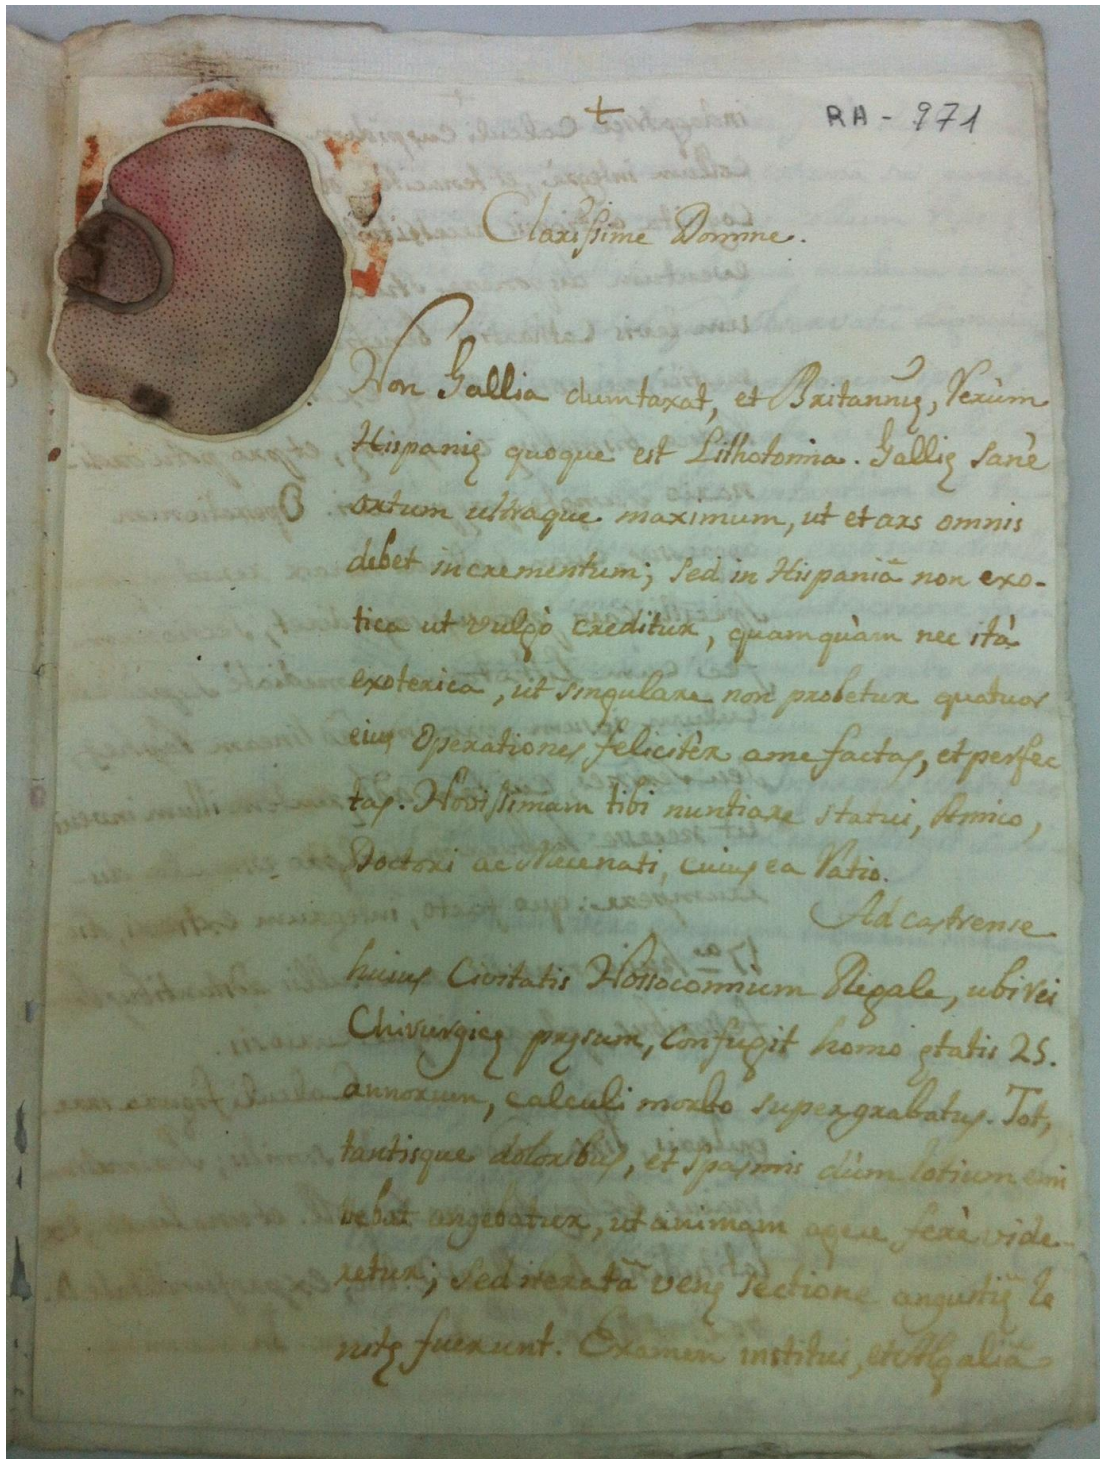 RA - 971
Clarissime Domine.
Non Gallia dumtaxat, et Britannię, Verùm
Hispanię quoque est Lithotomia. Gallię sanè
ortum utraque maximum, ut et ars omnis
debet incrementum; sed in Hispaniâ non exo-
tica ut vulgò creditur, quamquàm nec ità
exoterica, ut singulare non probetur quatuor
eius Operationes felicitèr a me factas, et perfec
tas. Novissimam tibi nuntiare statui, Amico,
Doctori ac Mecenati, cuius ea Ratio.
Ad castrense
huius Civitatis Nosoconium Regale, ubi rei
Chirurgicę pręsum, confugit homo ętatis 25.
annorum, calculi morbo super grabatus. Tot,
tantisque doloribus, et spasmis dùm lotium emi
tebat angebatur, ut animam agere ferè vide-
retur; sed iteratâ venę sectione angustię le
nitę fuerunt. Examen institui, et Algaliâ